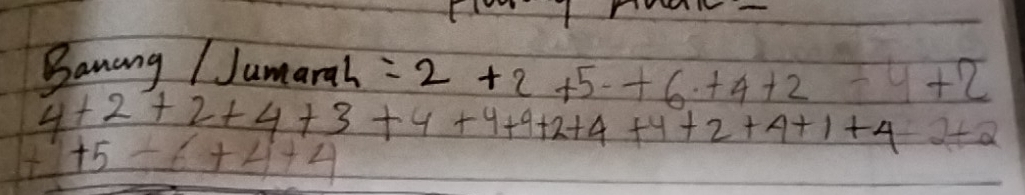 Banung / Jumarah = 2 + 2 + 5 + 6 + 4 + 2 - 4 + 2
4 + 2 + 2 + 4 + 3 + 4 + 4 + 9 + 2 + 4 + 4 + 2 + 4 + 1 + 4 - 2 + 2
+ 5 - 6 + 4 + 4